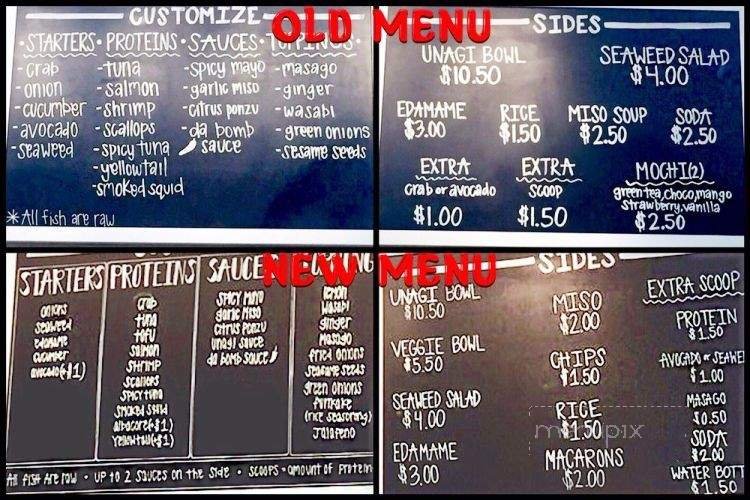 OLD MENU
CUSTOMIZE
·STARTERS· PROTEINS · SAUCES · TOPPINGS·
-crab -tuna -spicy mayo -masago
-onion -salmon -garlic miso -ginger
-cucumber -shrimp -citrus ponzu -wasabi
-avocado -scallops -da bomb sauce -green onions
-seaweed -spicy tuna -sesame seeds
-yellowtail
-smoked squid
*All fish are raw
SIDES
UNAGI BOWL SEAWEED SALAD
$10.50 $4.00
EDAMAME RICE MISO SOUP SODA
$3.00 $1.50 $2.50 $2.50
EXTRA EXTRA MOCHI(2)
crab or avocado scoop green tea, choco, mango
strawberry, vanilla
$1.00 $1.50 $2.50
NEW MENU
STARTERS PROTEINS SAUCE
onions
seaweed
edamame
cucumber
avocado(+$1)
crab
tuna
tofu
salmon
shrimp
scallops
spicy tuna
smoked squid
albacore(+$1)
yellowtail(+$1)
spicy mayo
garlic miso
citrus ponzu
unagi sauce
da bomb sauce
lemon
wasabi
ginger
masago
fried onions
sesame seeds
green onions
furikake
(rice seasoning)
jalapeno
All fish are raw · up to 2 sauces on the side · scoops = amount of protein
SIDES
UNAGI BOWL
$10.50
VEGGIE BOWL
$5.50
SEAWEED SALAD
$4.00
EDAMAME
$3.00
MISO
$2.00
CHIPS
$1.50
RICE
$1.50
MACARONS
$2.00
EXTRA SCOOP
PROTEIN
$1.50
AVOCADO or SEAWE
$1.00
MASAGO
$0.50
SODA
$2.00
WATER BOTT
$1.50
menupix